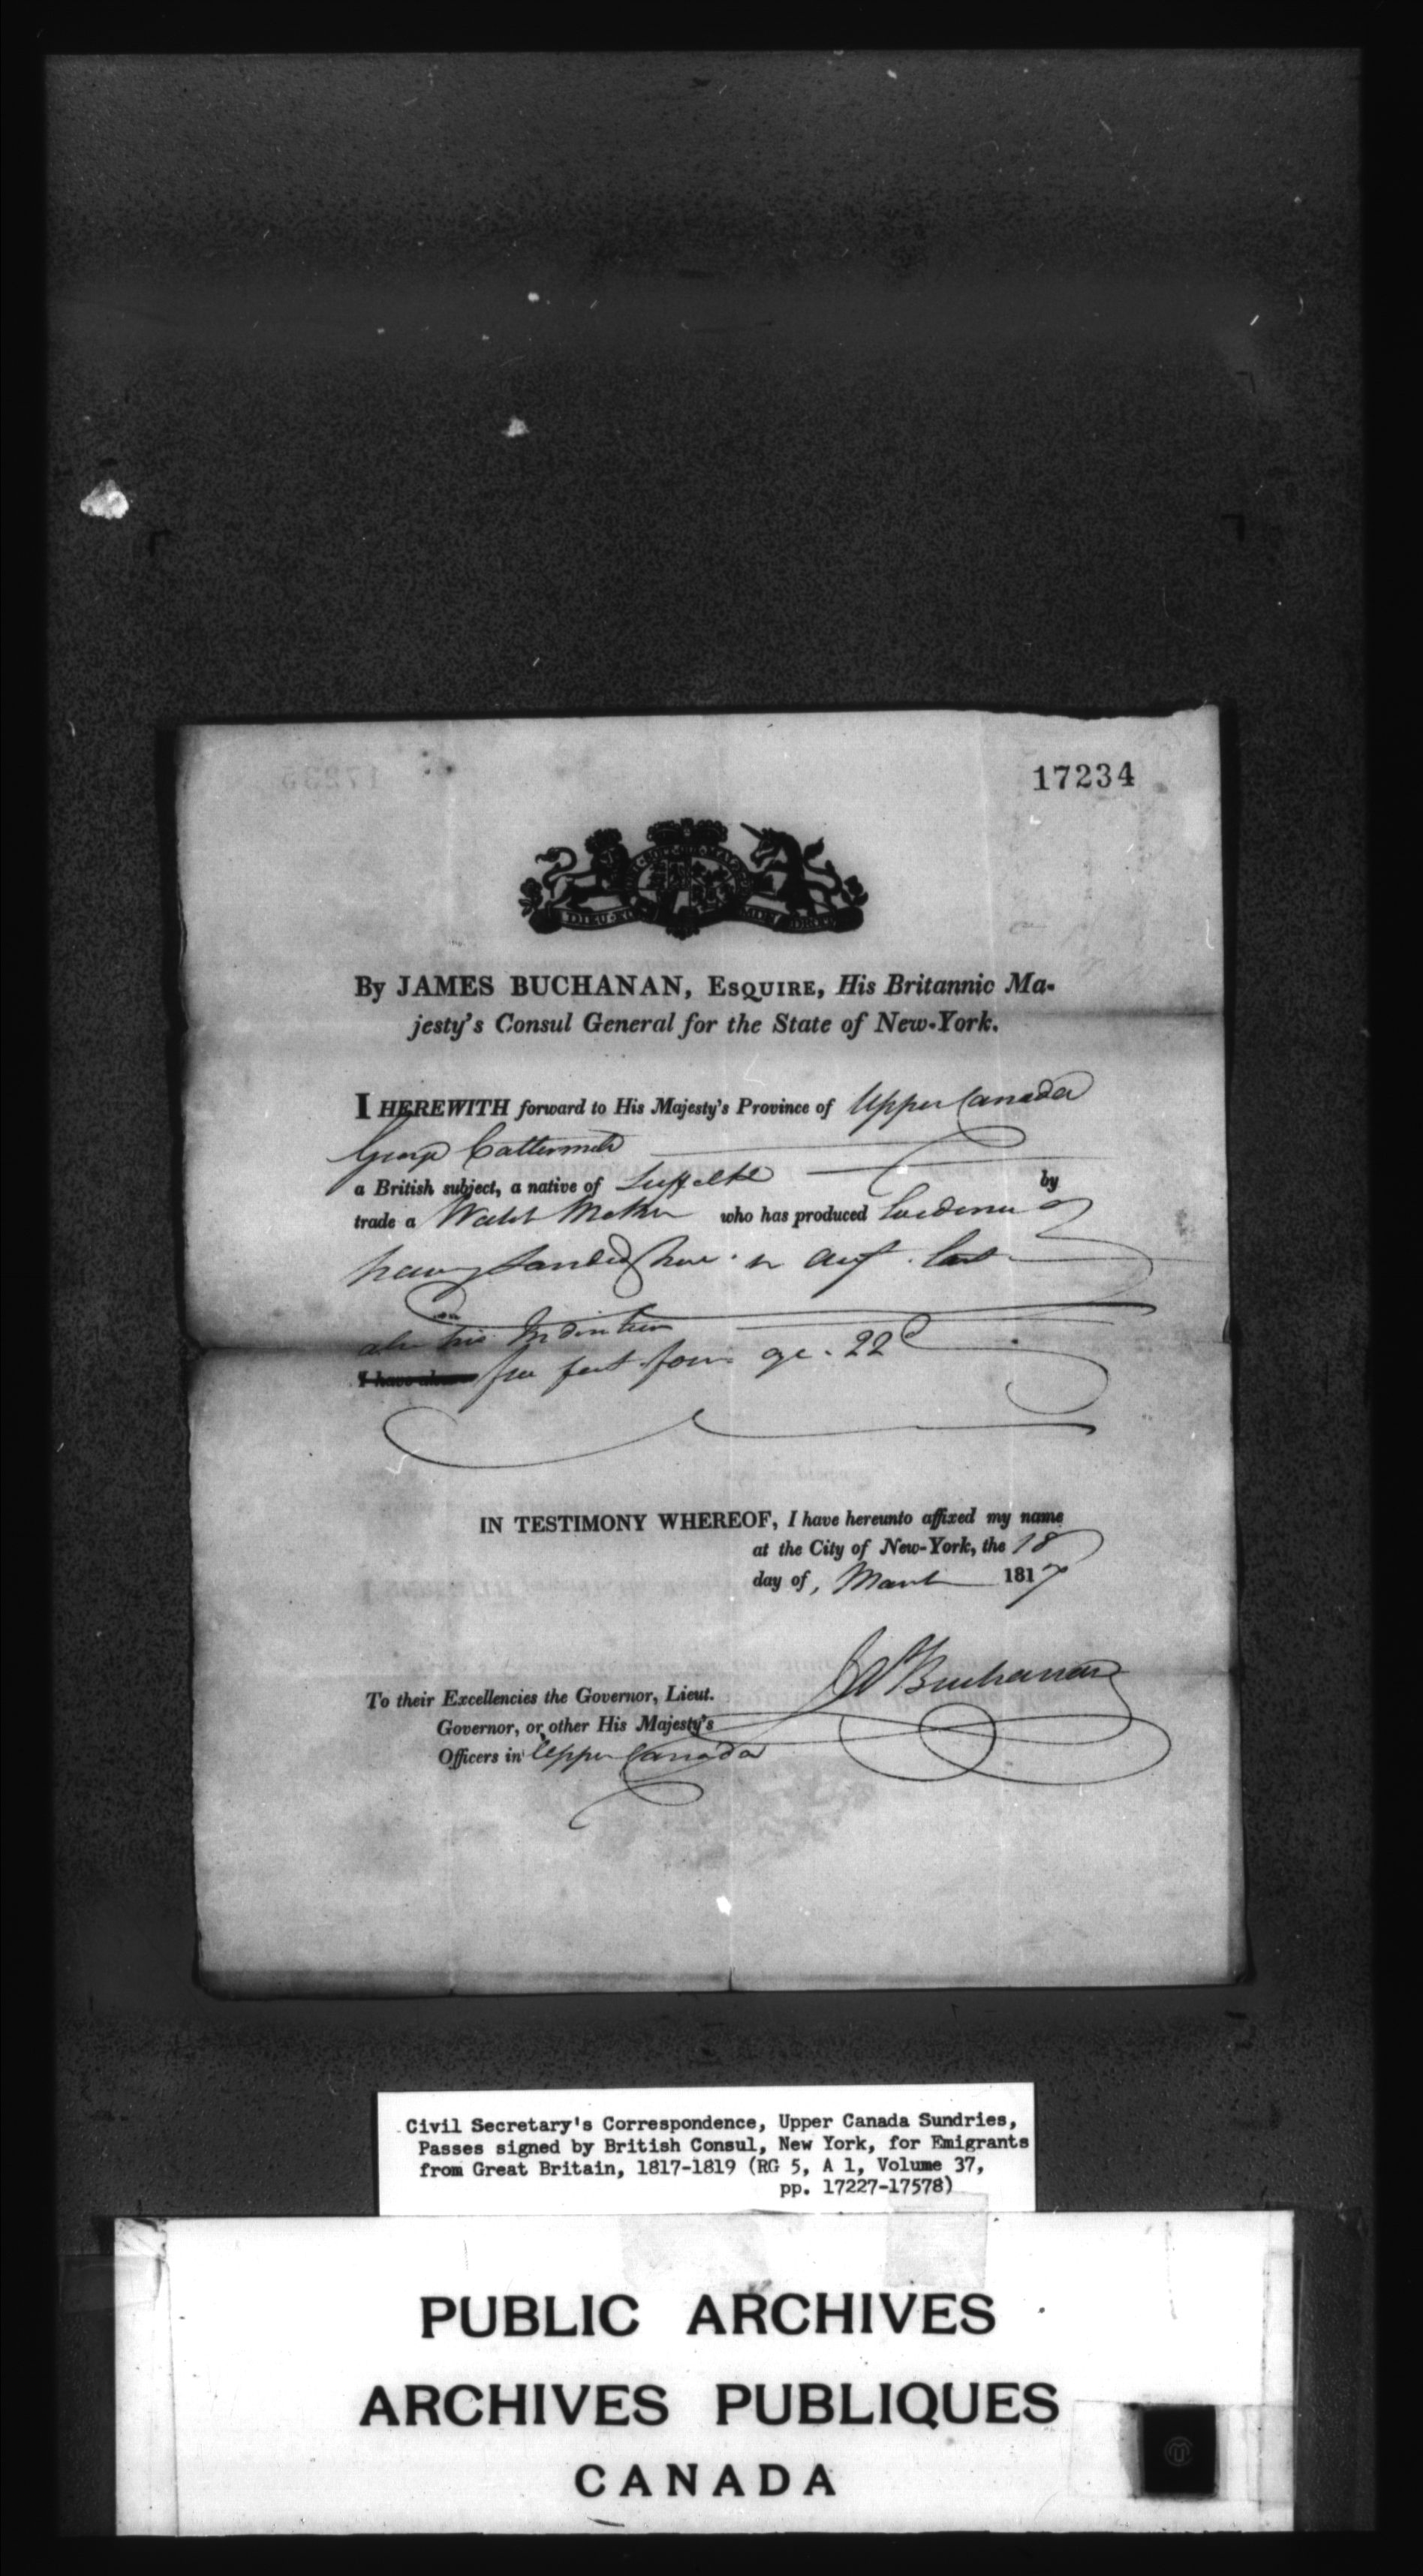 17234
DIEU ET MON DROIT
By JAMES BUCHANAN, ESQUIRE, His Britannic Ma-
jesty's Consul General for the State of New-York.
I HEREWITH forward to His Majesty's Province of Upper Canada
George Cattermole
a British subject, a native of Suffolk by
trade a Watch Maker who has produced Evidence of
having landed here in Augt. last
also his Indenture
I have also five feet four age 22
IN TESTIMONY WHEREOF, I have hereunto affixed my name
at the City of New-York, the 18
day of, March 1817
Js Buchanan
To their Excellencies the Governor, Lieut.
Governor, or other His Majesty's
Officers in Upper Canada
Civil Secretary's Correspondence, Upper Canada Sundries,
Passes signed by British Consul, New York, for Emigrants
from Great Britain, 1817-1819 (RG 5, A 1, Volume 37,
pp. 17227-17578)
PUBLIC ARCHIVES
ARCHIVES PUBLIQUES
CANADA